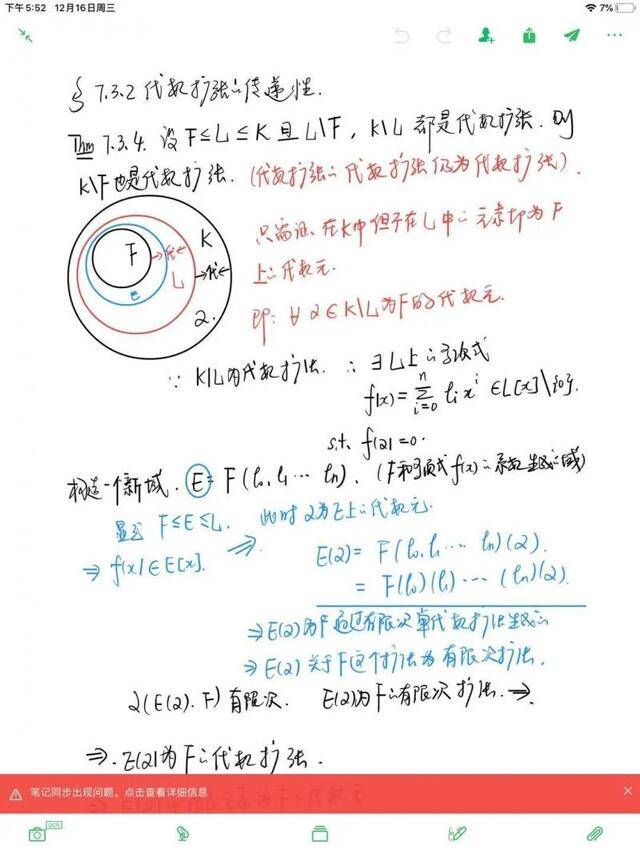 下午5:52 12月16日周三 7%
§ 7.3.2 代数扩张的传递性.
Thm 7.3.4. 设 F≤L≤K 且 L\F, K\L 都是代数扩张. 则
K\F也是代数扩张. (代数扩张的代数扩张仍为代数扩张).
F K L E 代 代 α.
只需证、在K中但不在L中的元素即为F
上的代数元.
即: ∀ α∈K\L 为F的代数元.
∵ K\L为代数扩张. ∴ ∃ L上的多项式
f(x)=∑_{i=0}^{n} l_i x^i ∈L[x]\{0}.
s.t. f(α)=0.
构造一个新域. E=F(l₀, l₁ ⋯ lₙ). (F和多项式f(x)的系数生成的域)
显然 F≤E≤L. 此时 α为E上的代数元.
⇒ f(x)∈E[x]. ⇒ E(α)= F(l₀, l₁ ⋯ lₙ)(α).
= F(l₀)(l₁) ⋯ (lₙ)(α).
⇒E(α)为F通过有限次单代数扩张生成的
⇒ E(α) 关于F这个扩张为有限次扩张.
α(E(α). F) 有限次. E(α)为F的有限次扩张. ⇒
⇒. E(α)为F的代数扩张.
笔记同步出现问题，点击查看详细信息